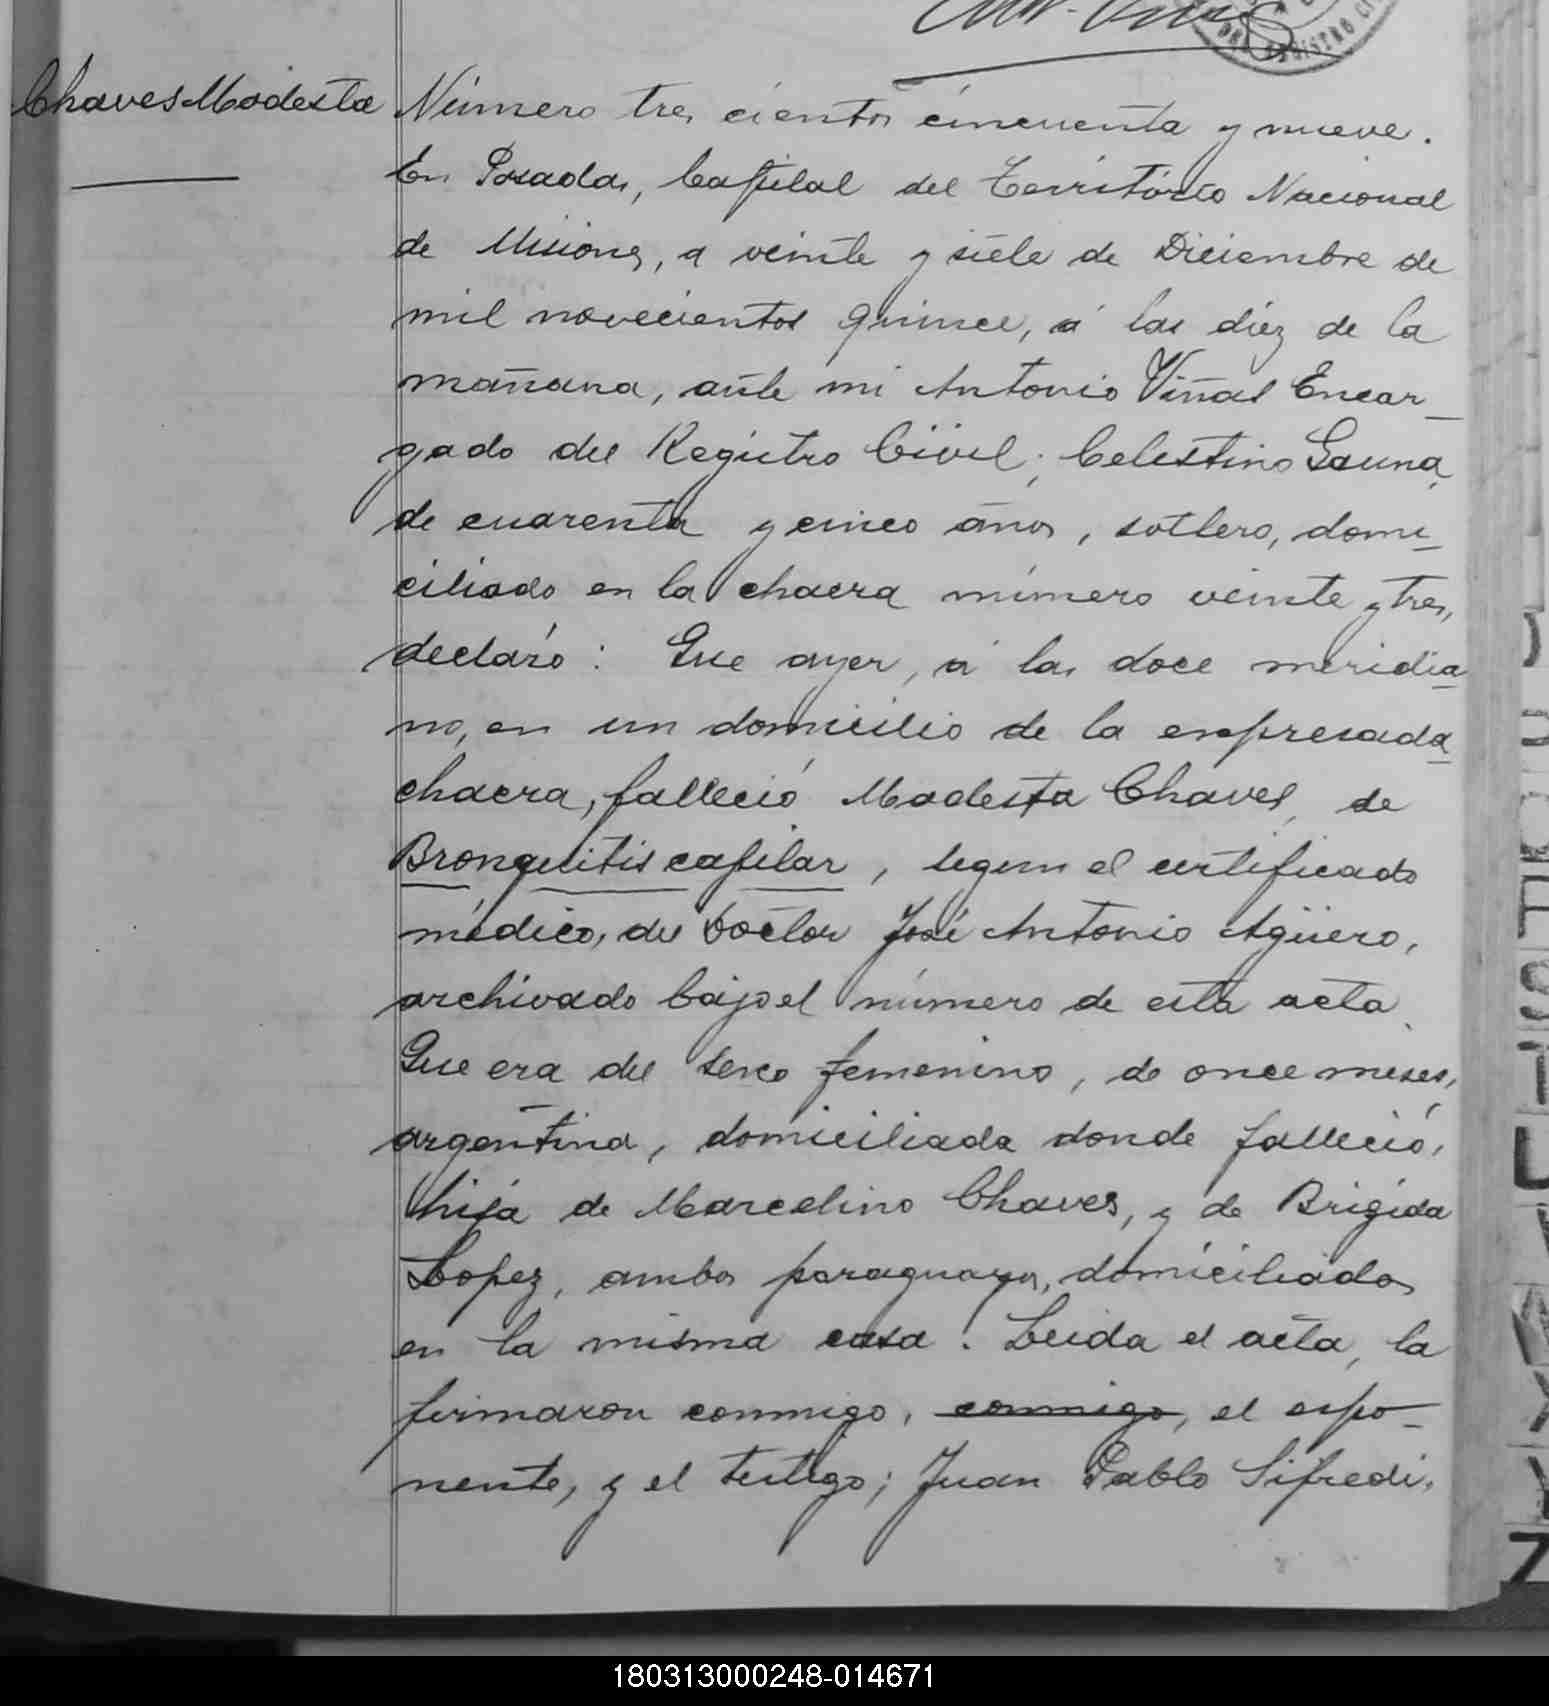 DEL REGISTRO CI
Chaves Modesta
Número tres cientos cincuenta y nueve.
En Posadas, Capital del Territorio Nacional
de Misiones, a veinte y siete de Diciembre de
mil novecientos quince, á las diez de la
mañana, ante mi Antonio Viñas Encar-
gado del Registro Civil; Celestino Gauna,
de cuarenta y cinco años, soltero, domi-
ciliado en la chacra número veinte y tres,
declaró: Que ayer, á las doce meridia-
no, en un domicilio de la expresada
chacra, falleció Modesta Chaves, de
Bronquitis capilar, segun el certificado
médico, del Doctor José Antonio Agüero,
archivado bajo el número de esta acta.
Que era del sexo femenino, de once meses,
argentina, domiciliada donde falleció,
hija de Marcelino Chaves, y de Brigida
Lopez, ambos paraguayos, domiciliados
en la misma casa. Leida el acta, la
firmaron conmigo, conmigo, el expo-
nente, y el testigo; Juan Pablo Sifredi,
180313000248-014671